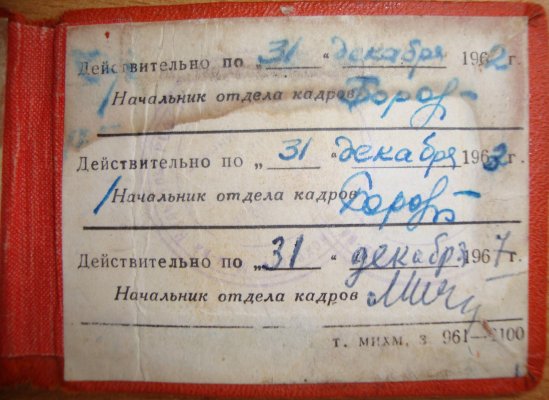 Действительно по „ 31 “ декабря 1962 г.
Начальник отдела кадров
Действительно по „ 31 “ декабря 1963 г.
Начальник отдела кадров
Действительно по „ 31 “ декабря 1967 г.
Начальник отдела кадров
т. МИХМ, з 961—1100